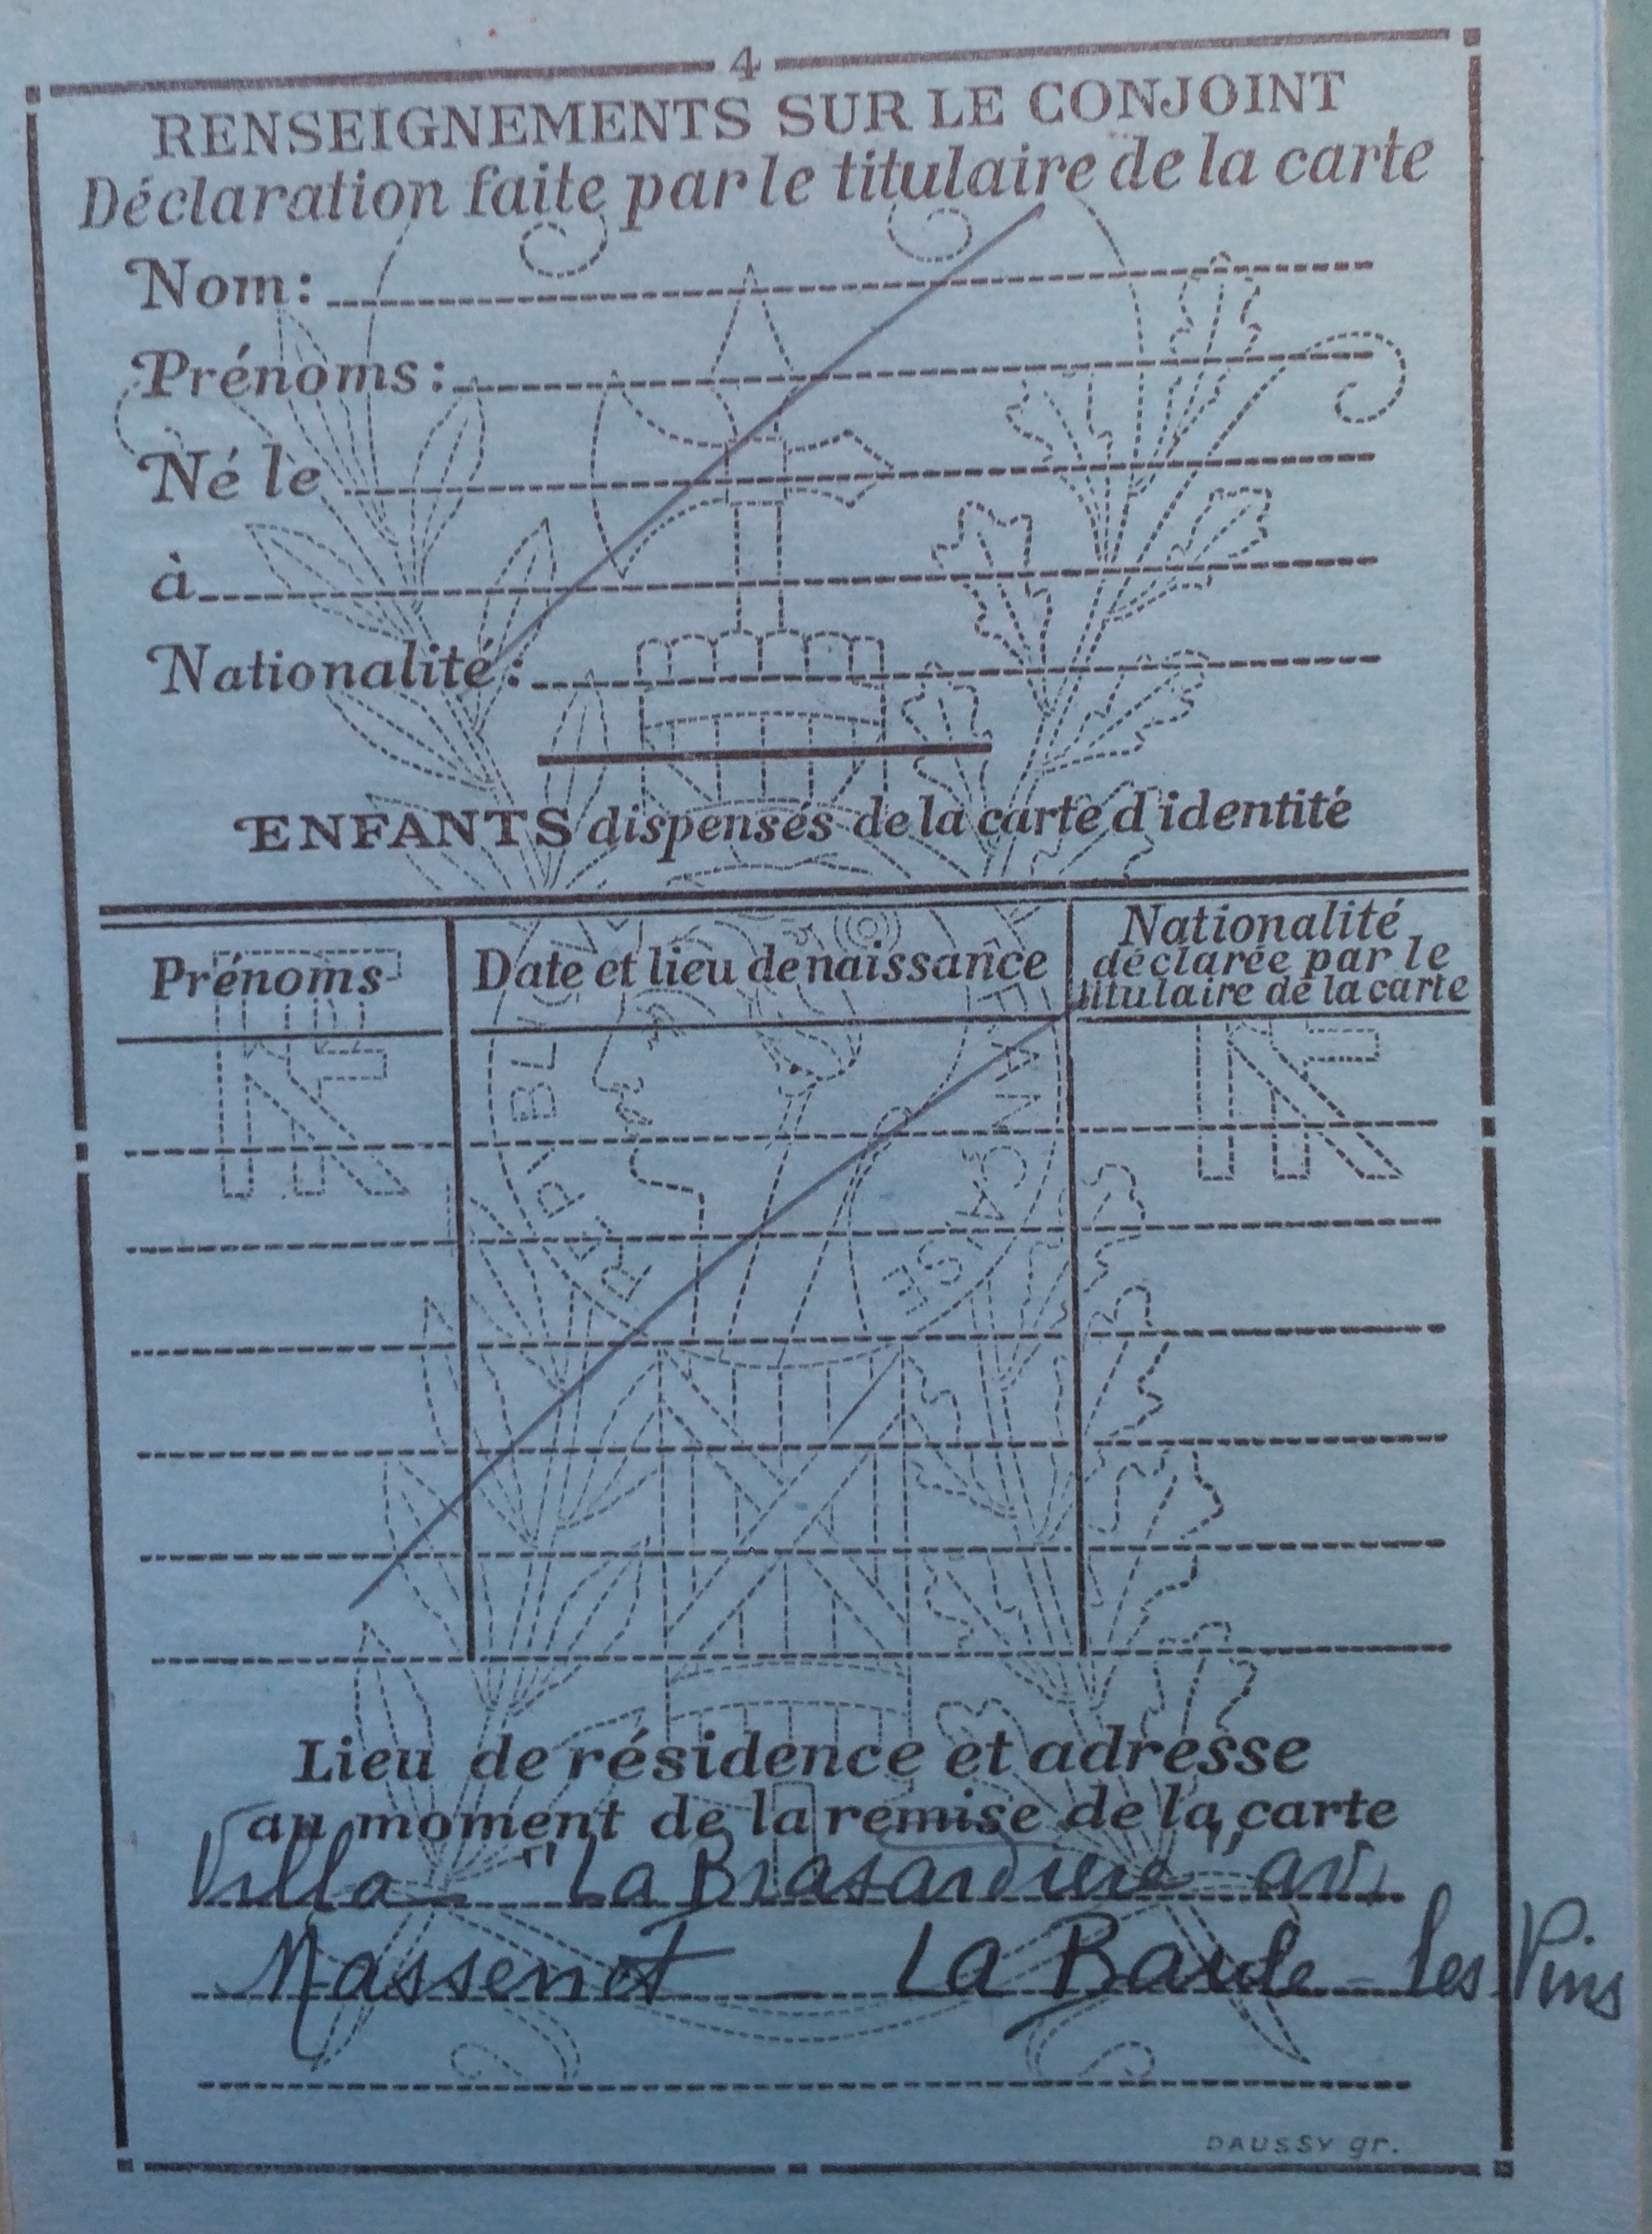 4
RENSEIGNEMENTS SUR LE CONJOINT
Déclaration faite par le titulaire de la carte
Nom:
Prénoms:
Né le
à
Nationalité:
ENFANTS dispensés de la carte d'identité
Prénoms
Date et lieu de naissance
Nationalité
déclarée par le
titulaire de la carte
RÉPUBLIQUE FRANÇAISE
Lieu de résidence et adresse
au moment de la remise de la carte
Villa "La Brasardière" av.
Massenet - La Baule - les Pins
DAUSSY gr.